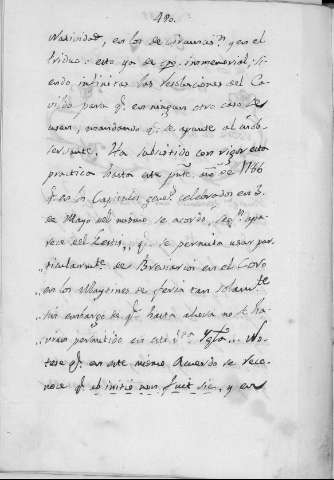 480.
Natividad, en los de Circuncis.n y en el
triduo: esto ya de tpo. inmemorial; si-
endo infinitas las resoluciones del Ca-
vildo para q.e en ningun otro caso se
usen, mandando q.e se apunte al inob-
servante. Ha subsistido con rigor esta
practica hasta este pnte. año de 1766
q.e en los Capitulos gener.s celebrados en 3.
de Mayo del mismo se acordo, seg.n apa-
rece del Lertis, q.e se permita usar par-
ticularmte. de Breviarios en el Coro
en los Maytines de feria tan solamte
sin embargo de q.e hasta ahora no se ha-
vian permitido en esta s.ta Ygla... No-
tese q.e en este mismo Acuerdo se reco-
noce q.e ab initio non fuit sic, y en